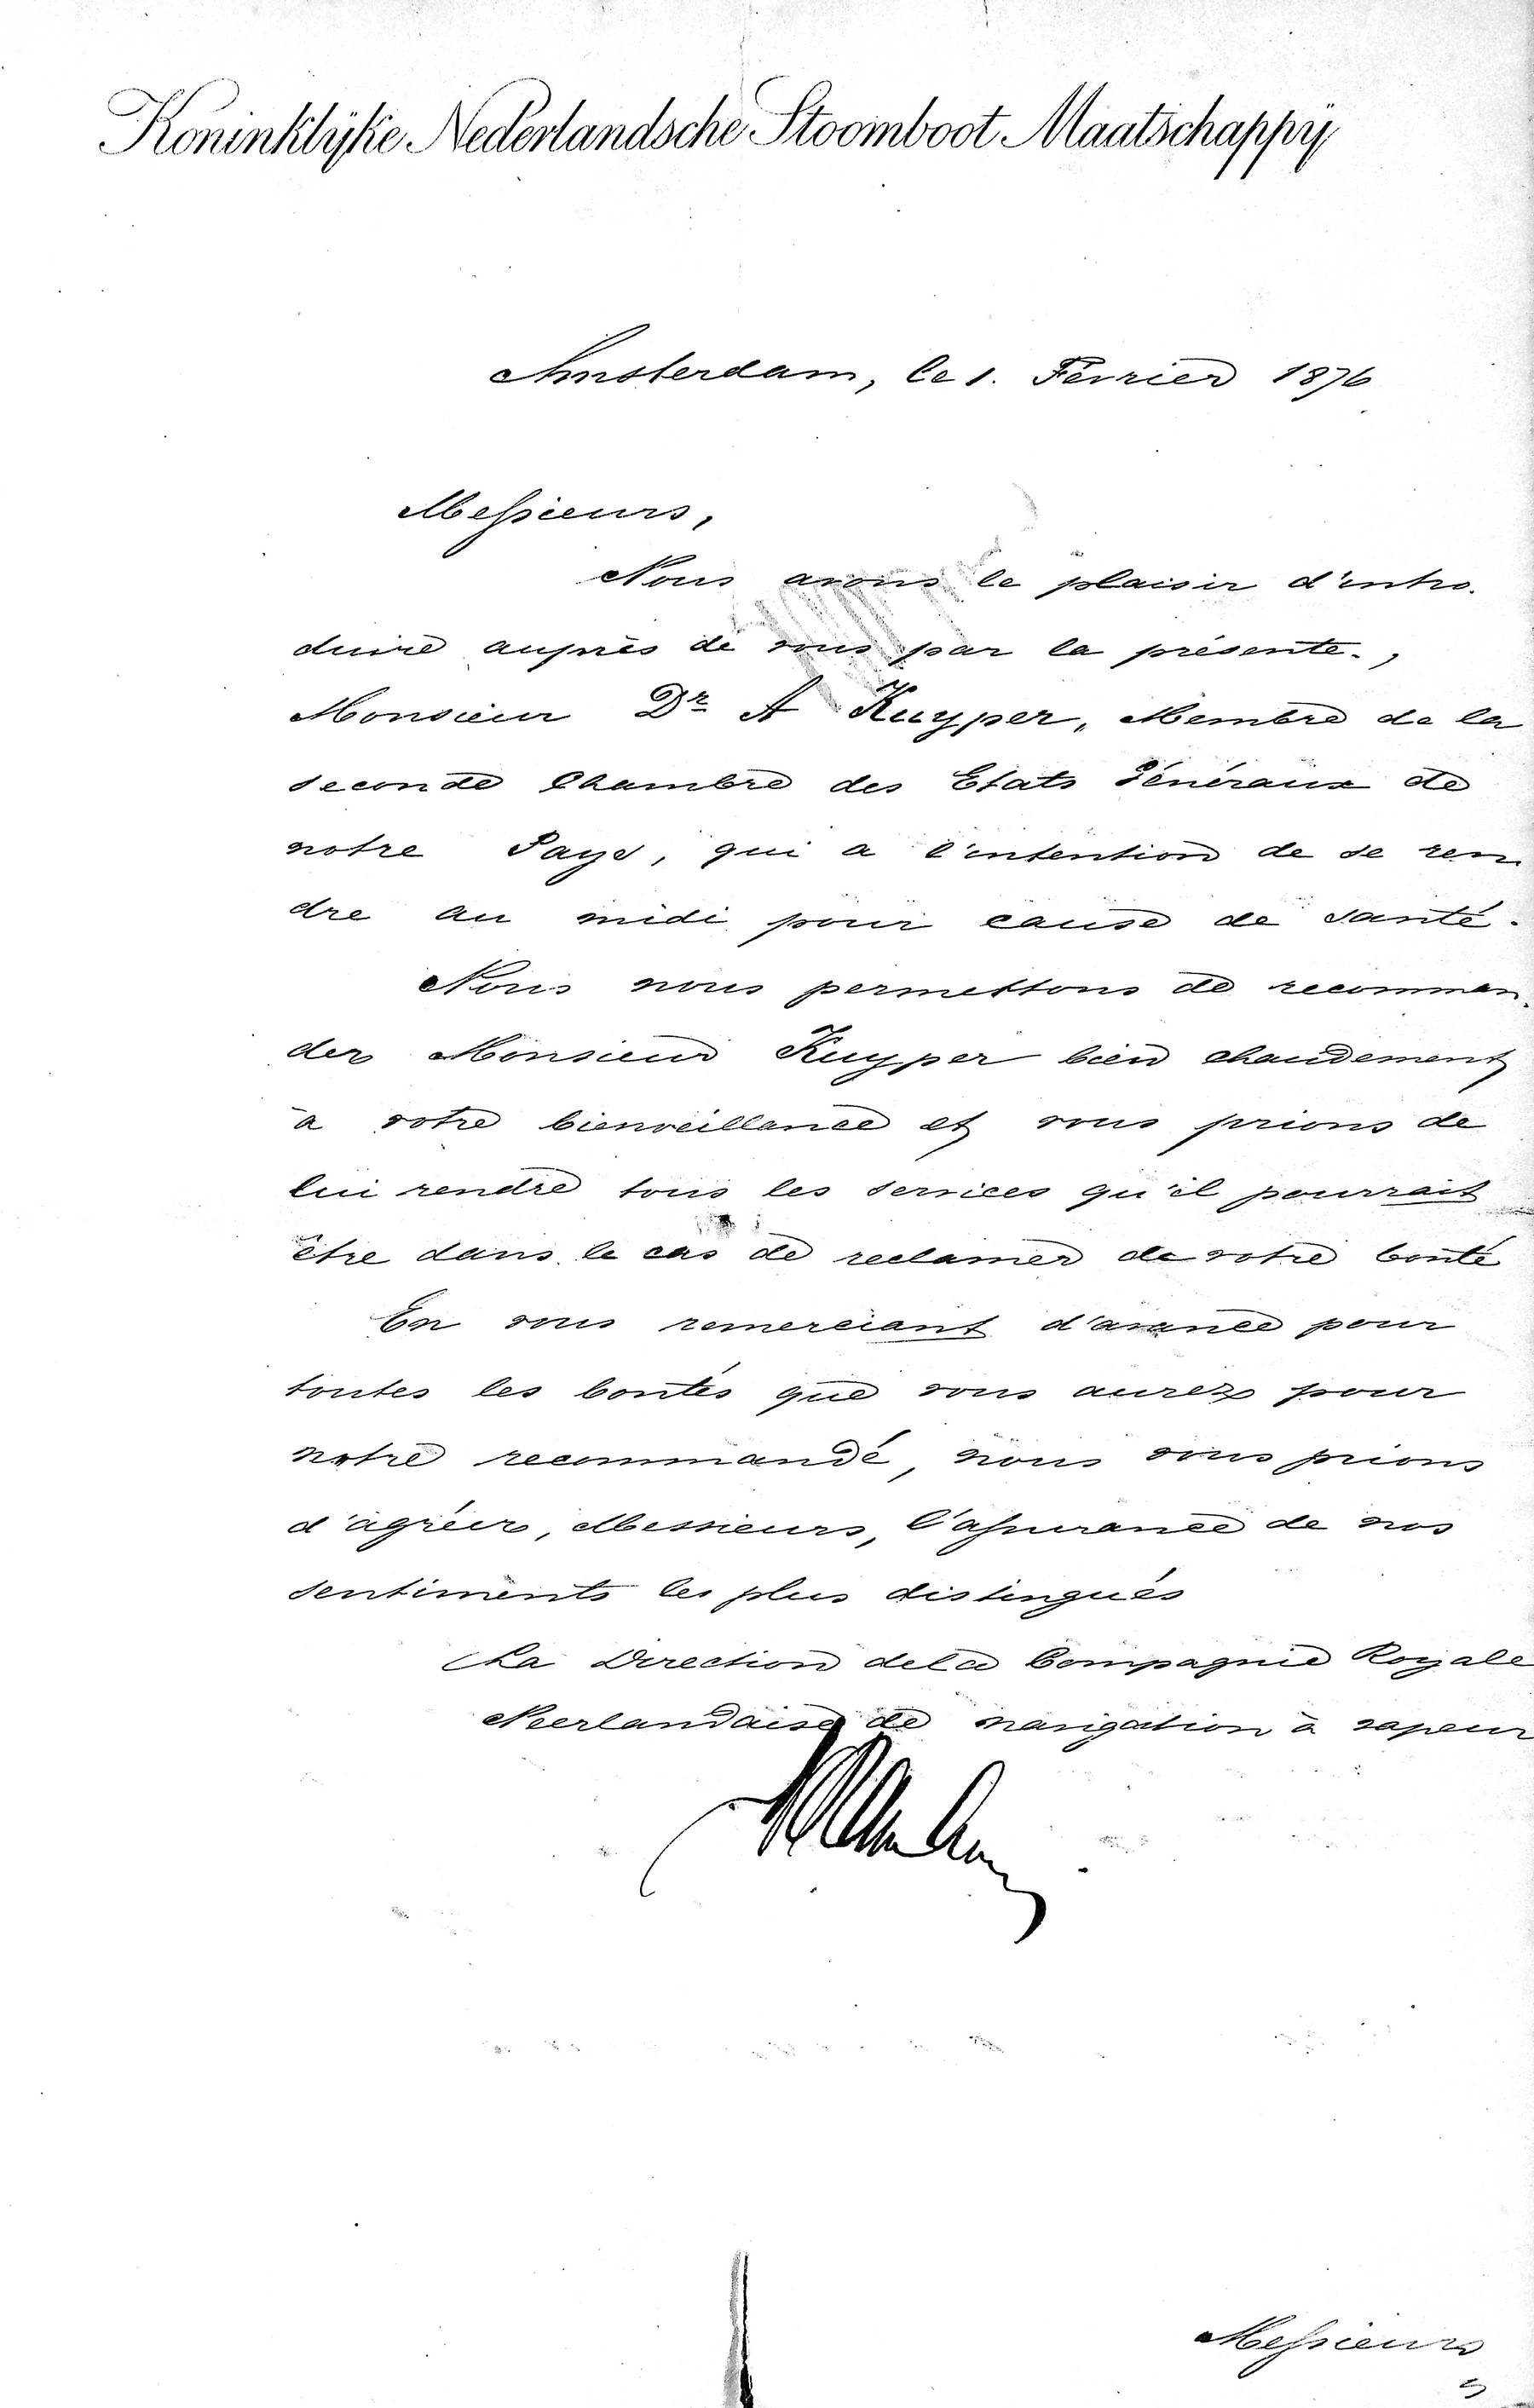 Koninklijke Nederlandsche Stoomboot Maatschappij
Amsterdam, le 1. Fevrier 1876
Messieurs,
Nous avons le plaisir d'intro-
duire auprès de vous par la présente.,
Monsieur Dr A Kuyper, Membre de la
seconde Chambre des Etats Généraux de
notre Pays, qui a l'intention de se ren
dre au midi pour cause de santé.
Nous nous permettons de recomman-
der Monsieur Kuyper bien chaudement
à votre bienveillance et vous prions de
lui rendre tous les services qu'il pourrait
être dans le cas de reclamer de votre bonté
En vous remerciant d'avance pour
toutes les bontés que vous aurez pour
notre recommandé, nous vous prions
d'agréer, Messieurs, l'assurance de nos
sentiments les plus distingués
La Direction de la Compagnie Royale
Neerlandaise de navigation à vapeur
Messieurs